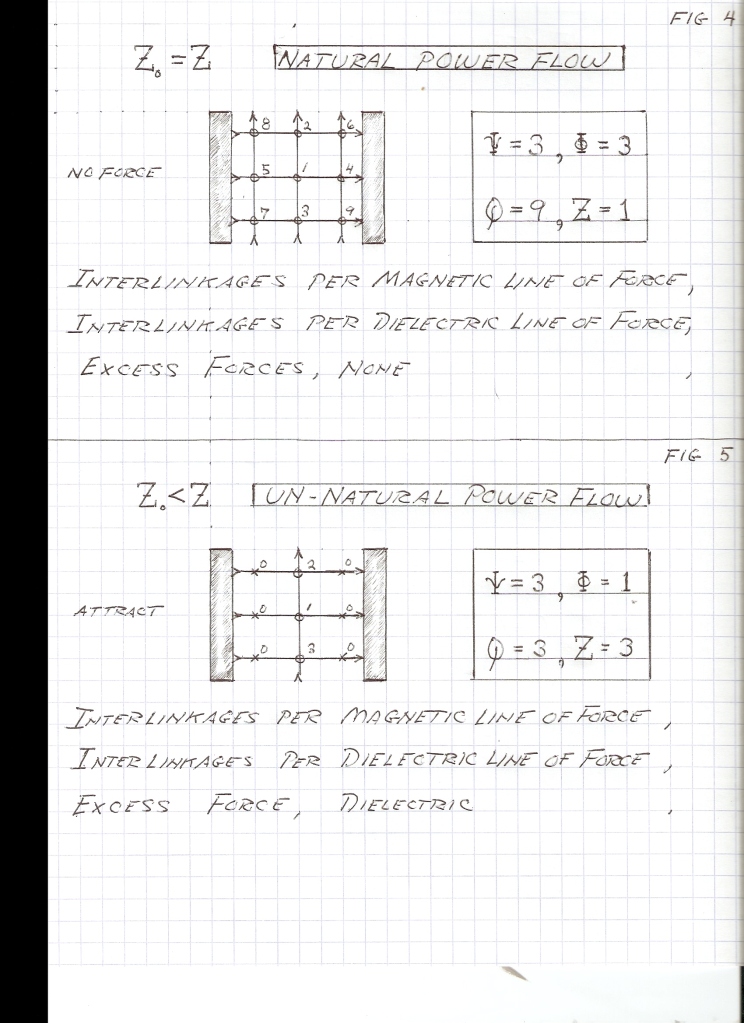 FIG 4
Z₀ = Z NATURAL POWER FLOW
8 2 6
Ψ = 3, Φ = 3
NO FORCE
5 1 4
7 3 9
Q = 9, Z = 1
INTERLINKAGES PER MAGNETIC LINE OF FORCE,
INTERLINKAGES PER DIELECTRIC LINE OF FORCE,
EXCESS FORCES, NONE ,
FIG 5
Z₀ < Z UN-NATURAL POWER FLOW
0 2 0
Ψ = 3, Φ = 1
ATTRACT
0 1 0
0 3 0
Q = 3, Z = 3
INTERLINKAGES PER MAGNETIC LINE OF FORCE ,
INTERLINKAGES PER DIELECTRIC LINE OF FORCE ,
EXCESS FORCE, DIELECTRIC ,